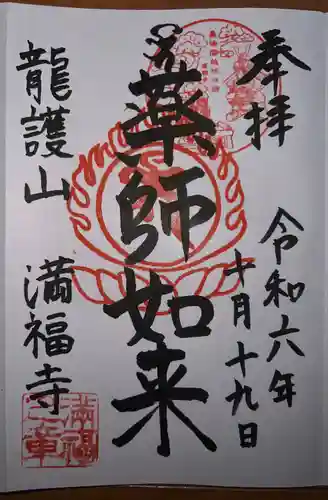 奉拝
令和六年
十月十九日
薬師如来
龍護山 満福寺
満福
之章